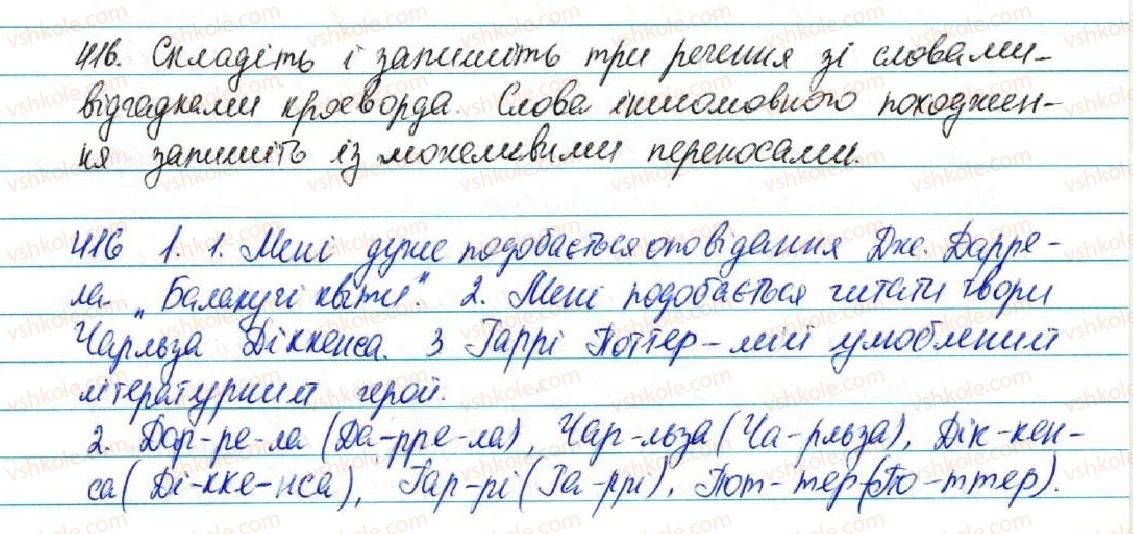 416. Складіть і запишіть три речення зі словами-
відгадками кросворда. Слова іншомовного походжен-
ня запишіть із можливими переносами.
416 1. 1. Мені дуже подобається оповідання Дж. Даррe-
ла „Балакучі квіти". 2. Мені подобається читати твори
Чарльза Діккенса. 3 Гаррі Поттер – мій улюблений
літературний герой.
2. Дар-ре-ла (Да-рре-ла), Чар-льза (Ча-рльза), Дік-кен-
са (Ді-кке-нса), Гар-рі (Га-ррі), Пот-тер (По-ттер).